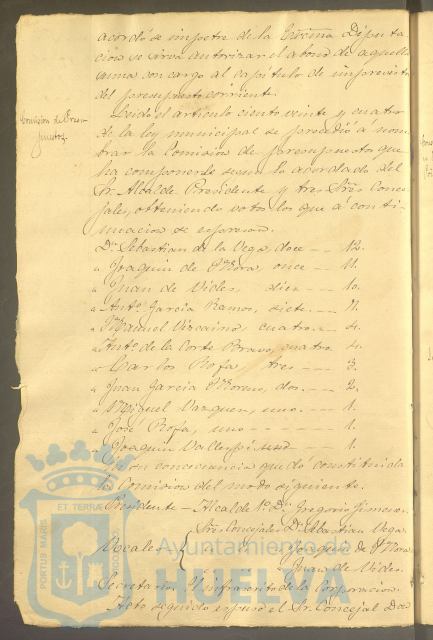 acordó se impetre de la Excma Diputa-
cion se sirva autorizar el abono de aquella
suma con cargo al capítulo de imprevistos
del presupuesto corriente.
Comision de Presu-
puestos
Leido el articulo ciento veinte y cuatro
de la ley municipal se procedió a nom-
brar la Comision de presupuestos que
ha componerse segun lo acordado del
Sr. Alcalde Presidente y tres Sres Conce-
jales, obteniendo votos los que á conti-
nuacion se espresan.
Dn Sebastian de la Vega, doce -- 12.
" Joaquin de Mora, once -- 11.
" Juan de Vides, diez -- 10.
" Anto. Garcia Ramos, siete -- 7.
" Manuel Vizcaino, cuatro -- 4.
" Anto. de la Corte Bravo, cuatro 4.
" Carlos Rofa, tres -- 3.
" Juan Garcia Moreno, dos -- 2.
" Miguel Vazquez, uno --- 1.
" José Rofa, uno --- 1.
" Joaquin 1.
En su consecuencia quedó constituida
la Comision del modo siguiente.
Presidente - Alcalde 1o. Dn Gregorio Jimenez
Vocales { Sres Concejales Dn Sebastian Vega.
" " Joaquin de Mora
" Juan de Vides.
Secretario El infrascrito de la Corporacion.
Acto seguido espuso el Sr. Concejal Don
PORTUS MARIS ET TERRAE
Ayuntamiento de
HUELVA